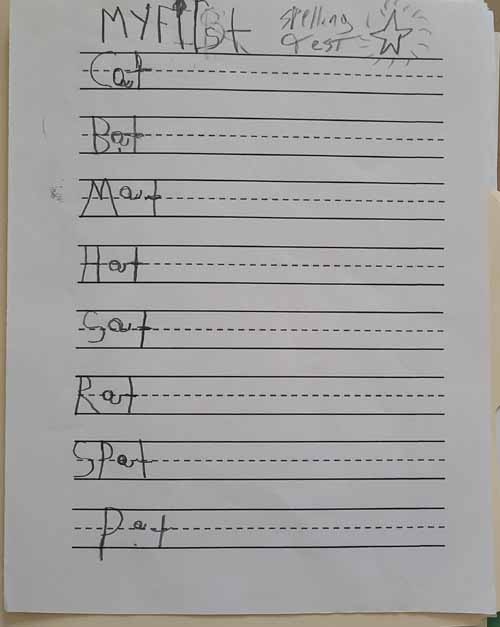 MY FIRSt spelling
test
Cat
Bat
Mat
Hat
Sat
Rat
SPat
Pat